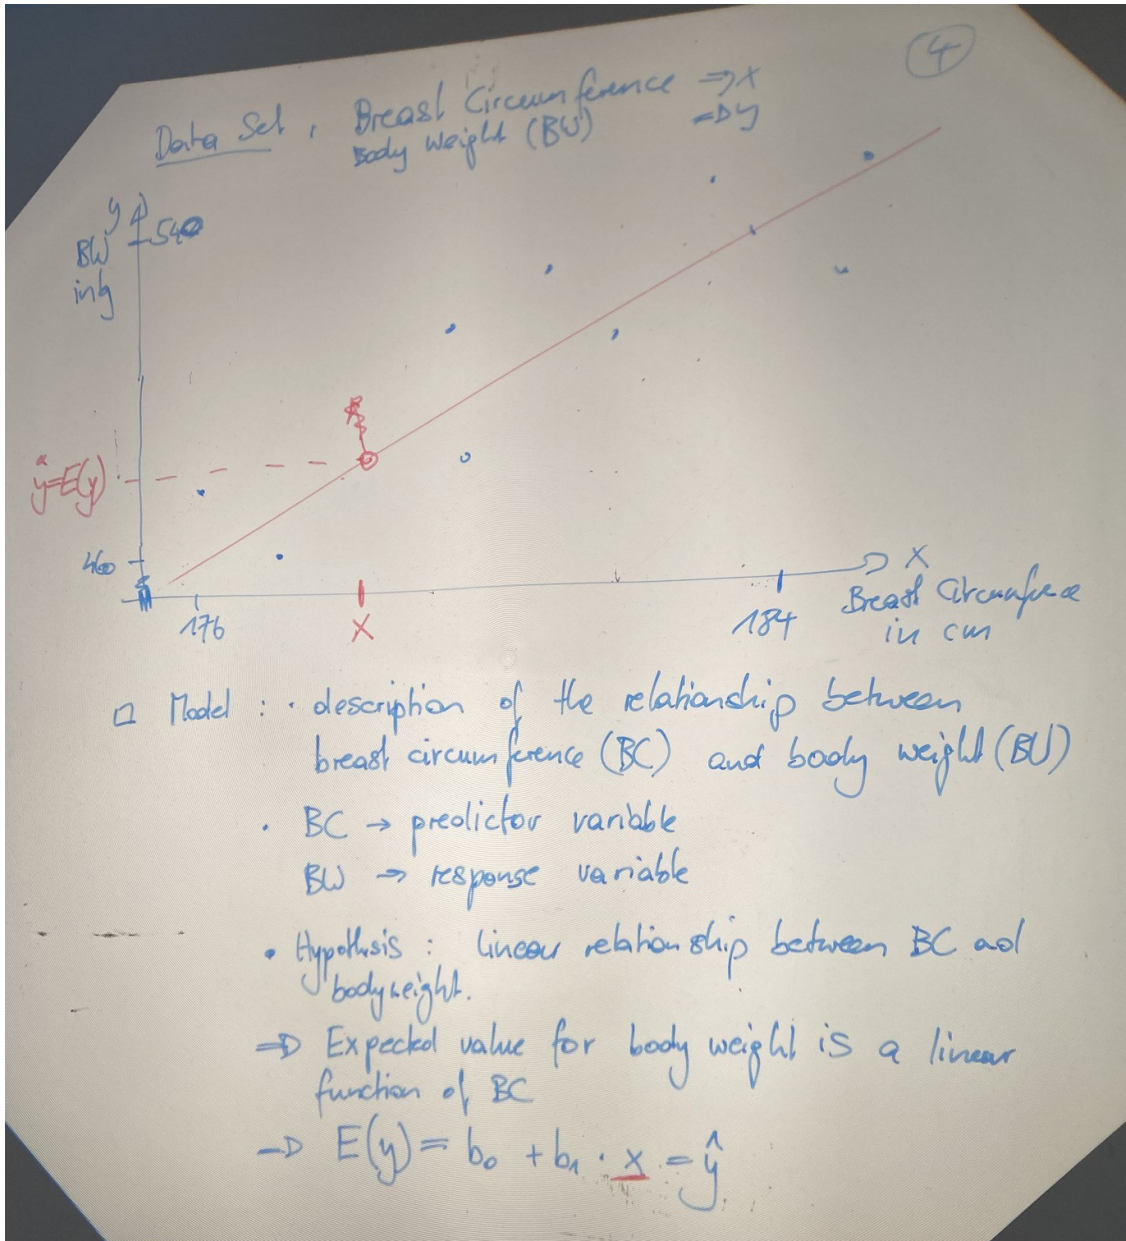 4
Data Set, Breast Circumference => x
Body Weight (BW) => y
y
BW
in kg
540
ŷ=E(y)
460
176
x
184
x
Breast Circumference
in cm
Model : · description of the relationship between
breast circumference (BC) and body weight (BW)
· BC → predictor variable
BW → response variable
• Hypothesis : linear relationship between BC and
bodyweight.
=> Expected value for body weight is a linear
function of BC
=> E(y) = b₀ + b₁ · x = ŷ